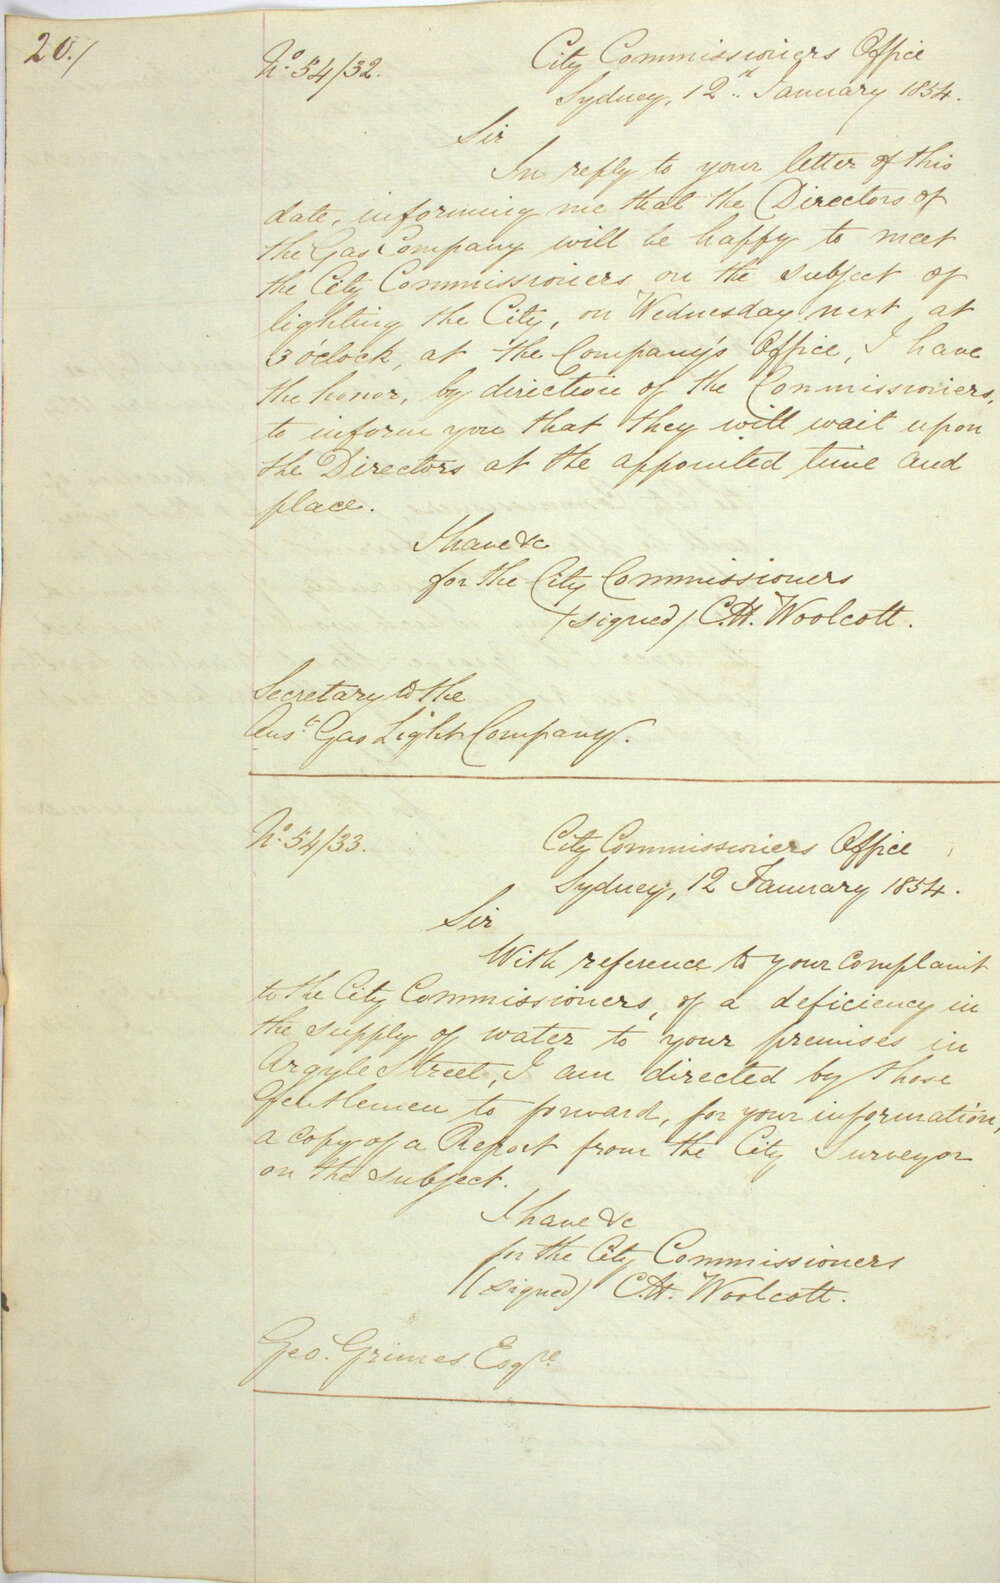 20./
No. 54/32.
City Commissioners Office
Sydney, 12th. January 1854.
Sir
In reply to your letter of this
date, informing me that the Directors of
the Gas Company will be happy to meet
the City Commissioners on the subject of
lighting the City, on Wednesday next, at
3 o'clock, at the Company's Office, I have
the honor, by direction of the Commissioners,
to inform you that they will wait upon
the Directors at the appointed time and
place.
I have &c
for the City Commissioners
(signed) C.H. Woolcott.
Secretary to the
Aus.n Gas Light Company.
No. 54/33.
City Commissioners Office
Sydney, 12 January 1854.
Sir
With reference to your complaint
to the City Commissioners, of a deficiency in
the supply of water to your premises in
Argyle Street, I am directed by those
Gentlemen to forward, for your information,
a copy of a Report from the City Surveyor
on the subject.
I have &c
for the City Commissioners
(signed) C.H. Woolcott.
Geo. Grimes Esqre